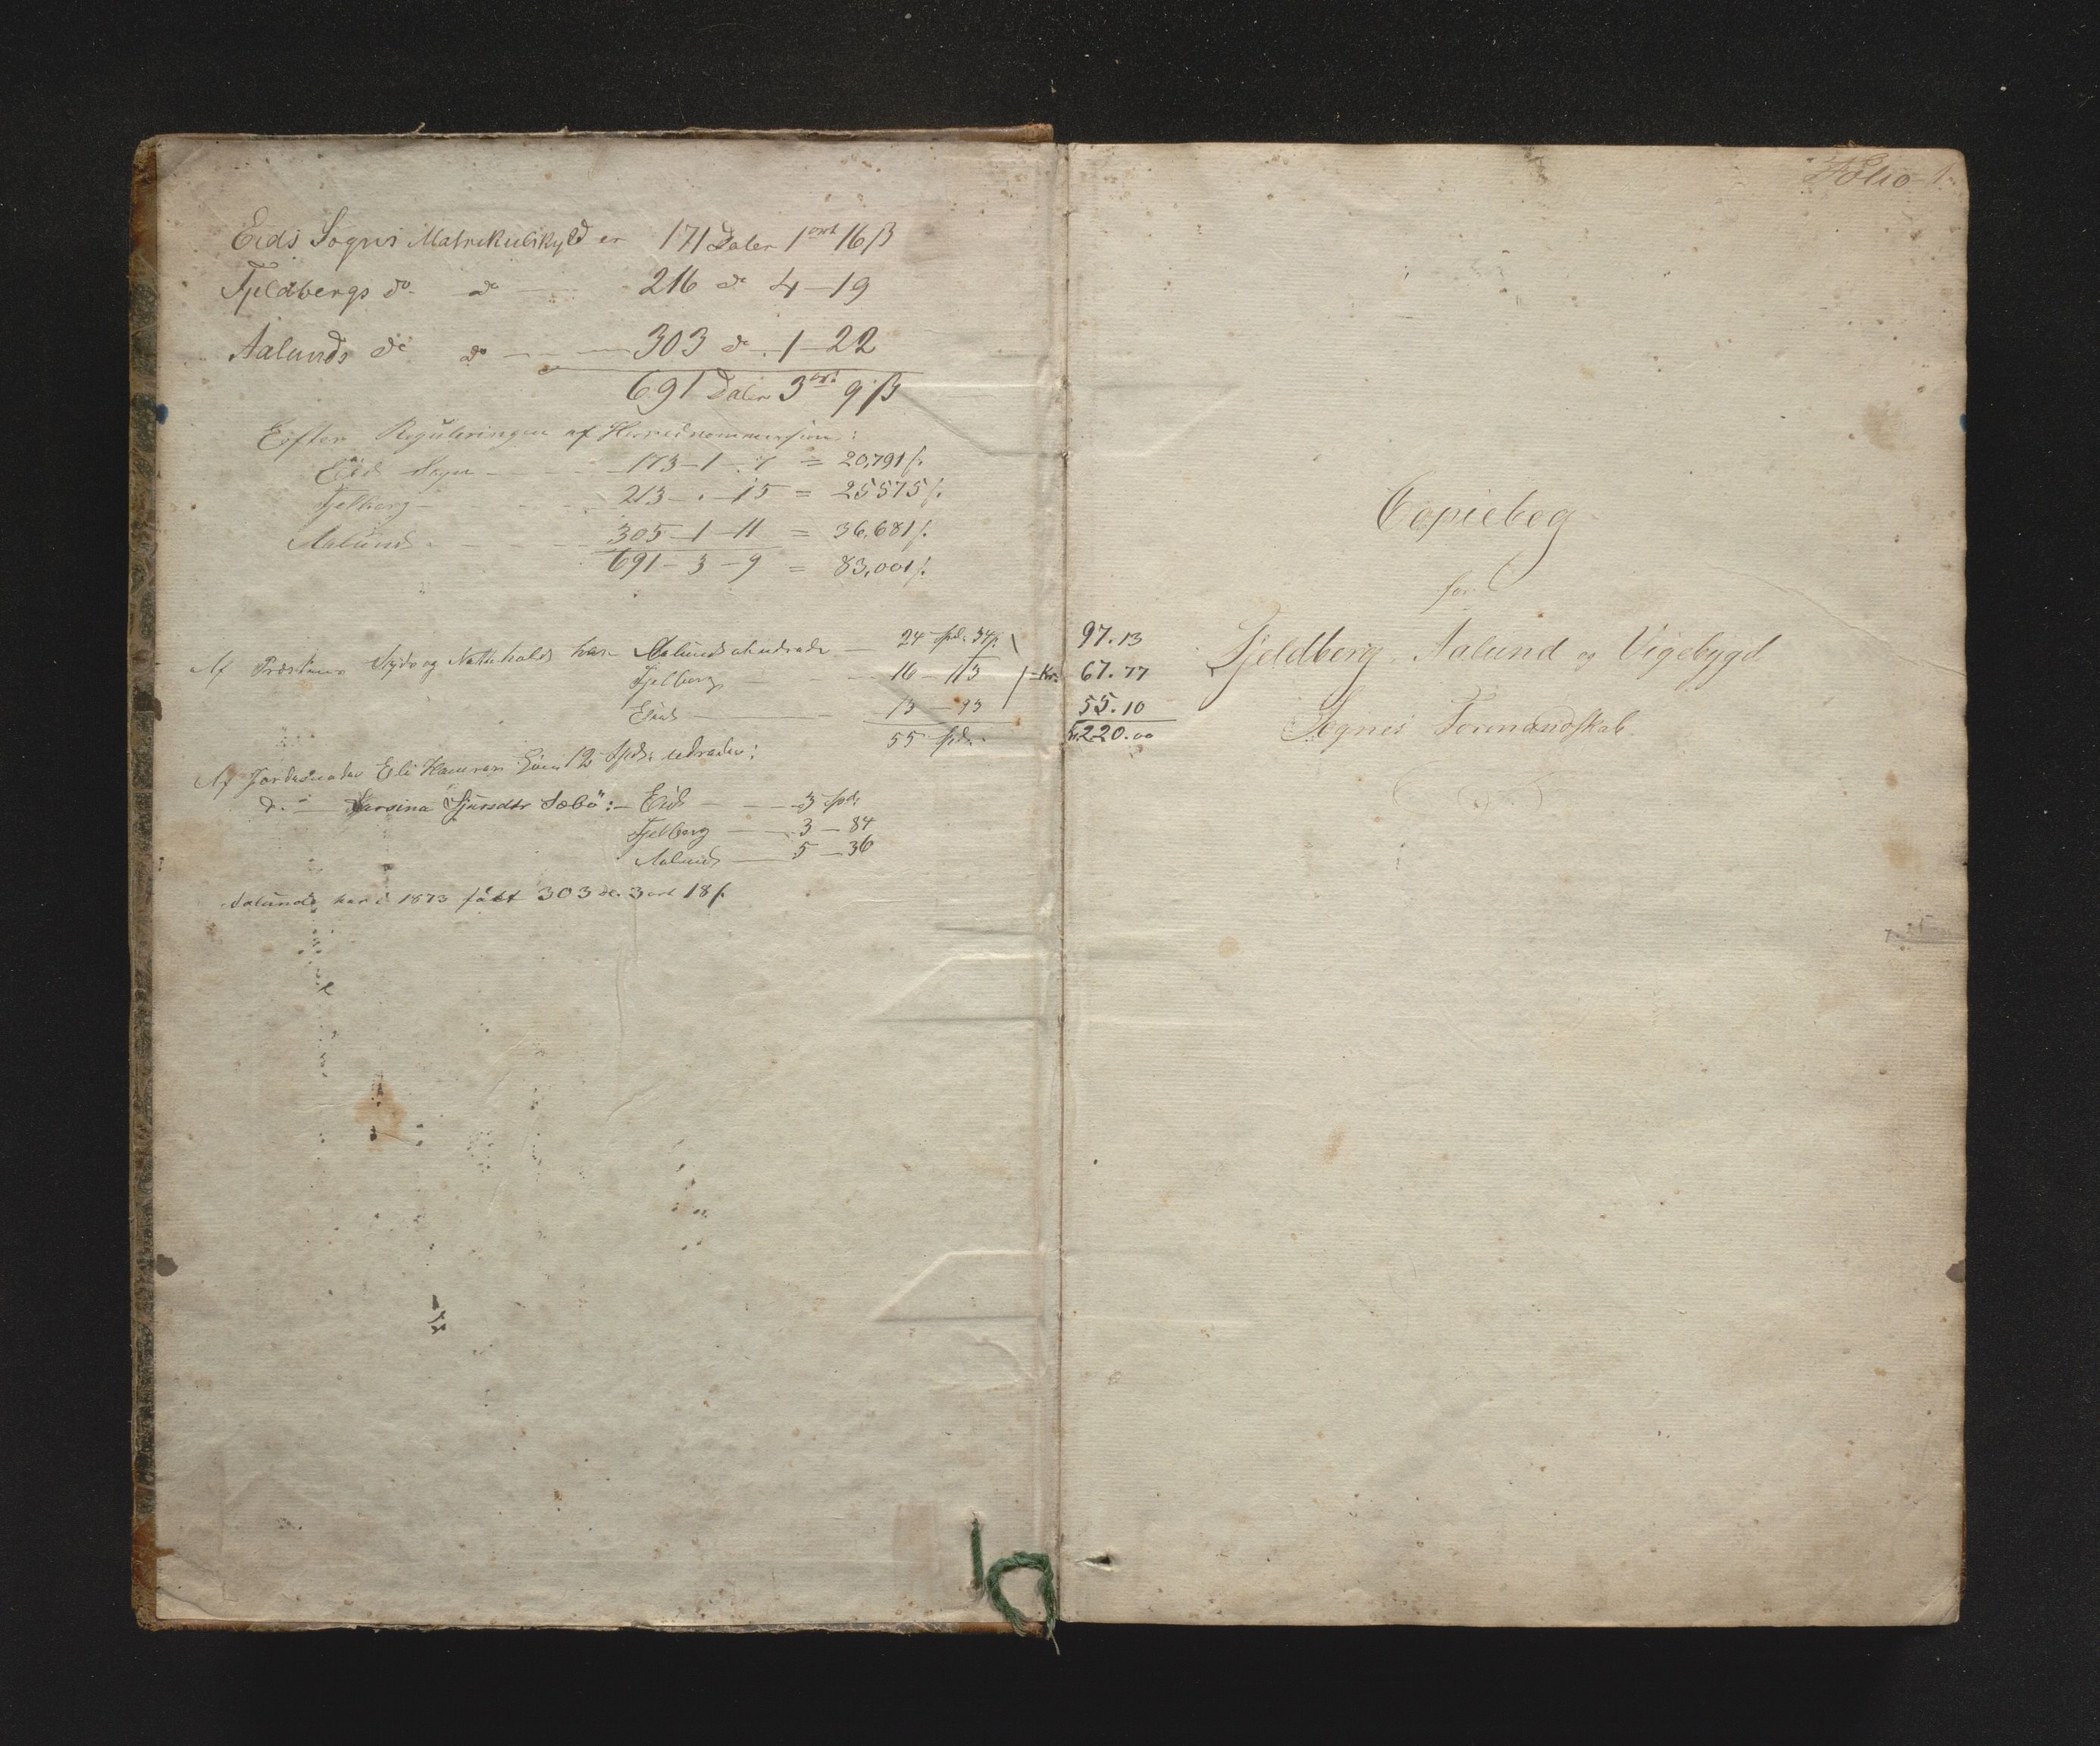 Eids Sogns Matrikulskyld er 171 Daler 1 ort 16 ß
Fjeldbergs do. do — 216 do 4 — 19
Aalunds do do — 303 do 1 — 22
691 Daler 3 ort 9 ß
Efter Reguleringen af Herredskommissionen:
Eids Sogn — 173 — 1 — 7 = 20,791 ß.
Fjelberg — 213 — . — 15 = 25575 ß.
Aalund — 305 — 1 — 11 = 36,681 ß.
691 — 3 — 9 = 83,001 ß.
Af Præstens har Aalund udredet — 24 Spd. 34 ß. 97.13
Fjelberg — 16 — 113 = Kr. 67.77
Eid — 13 — 93 55.10
55 Spd. Kr. 220.00
Af 12 Spd. udredes:
do. — Larsina Sjursdtr Sæbö: — Eid — 3 Spd.
Fjelberg — 3 — 84
Aalund — 5 — 36
Aalund har i 1873 fået 303 dr. 3 ort 18 ß.
Folio 1.
Copiebog
for
Fjeldberg, Aalund og Vigebygd
Sognes Formandskab.